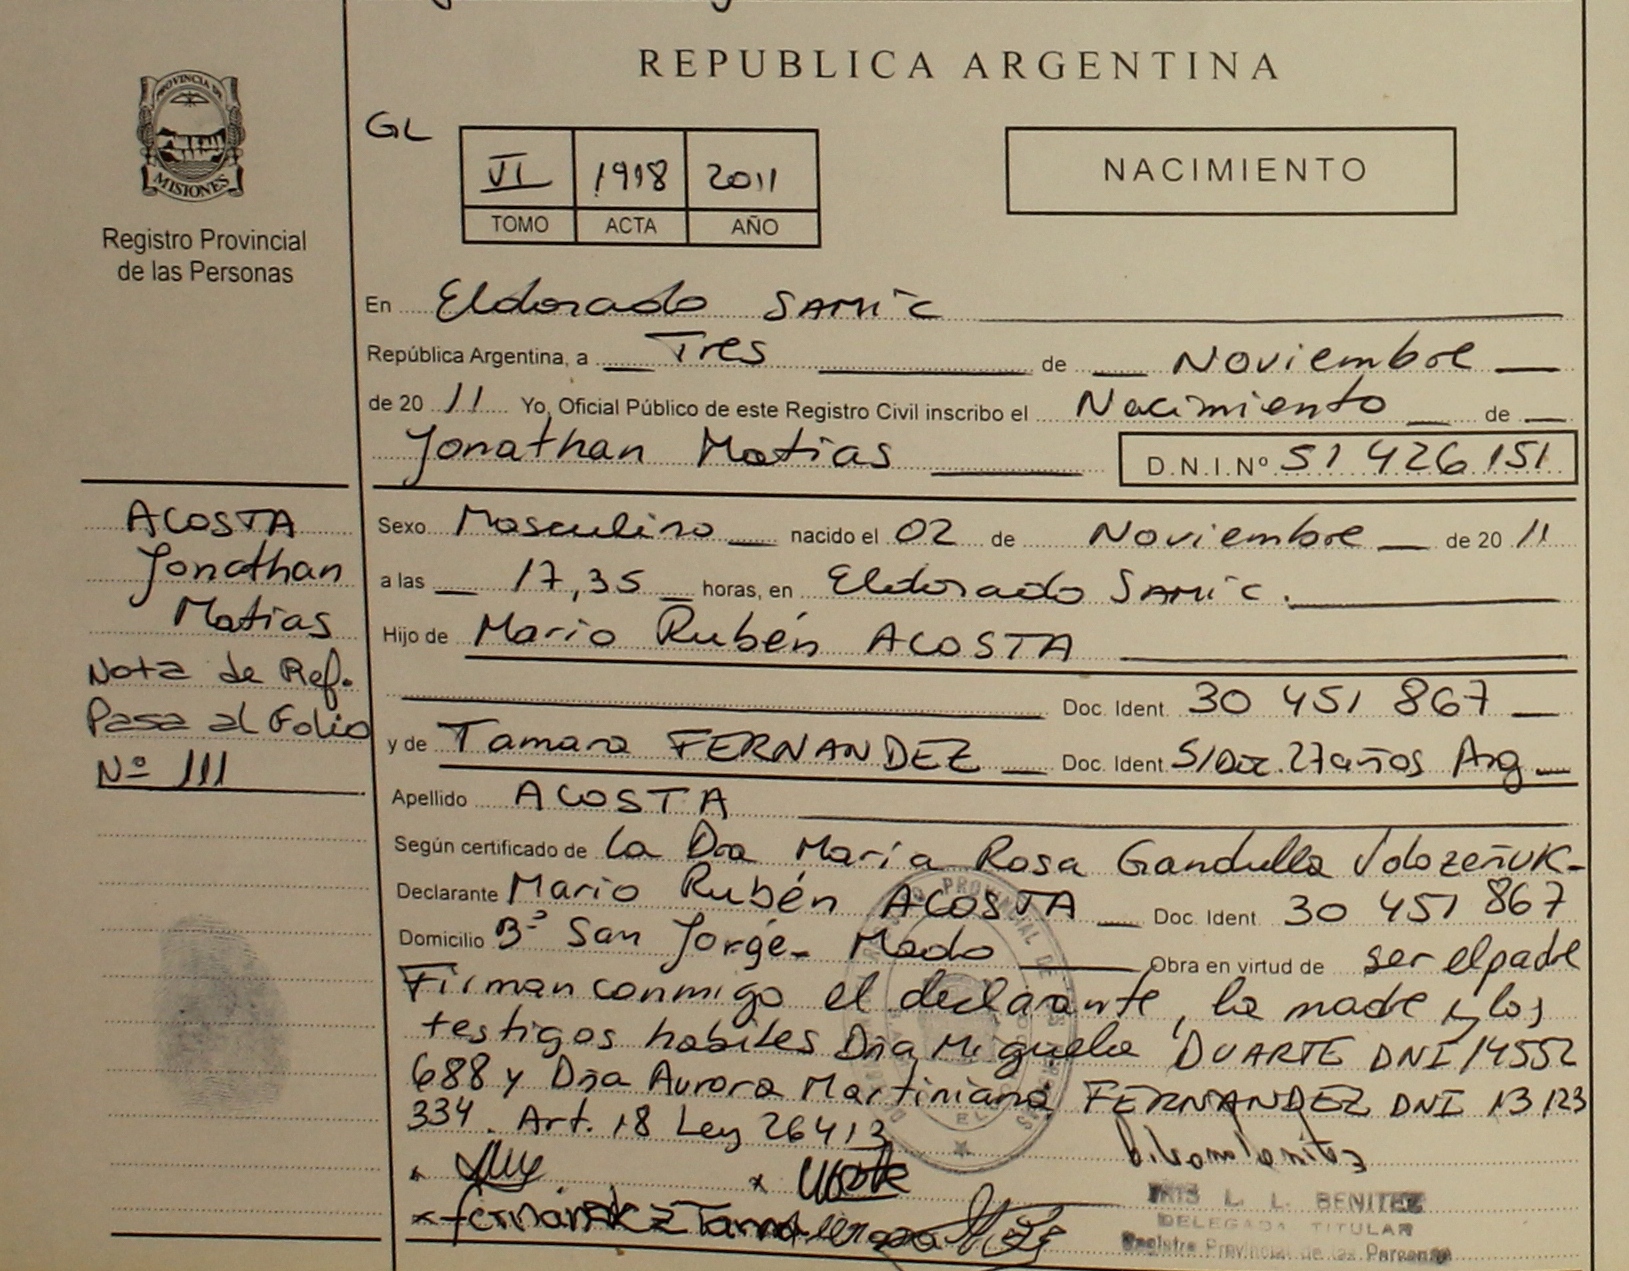 REPUBLICA ARGENTINA
PROVINCIA DE
MISIONES
Registro Provincial
de las Personas
GL
VI 1918 2011
TOMO ACTA AÑO
NACIMIENTO
En Eldorado SAMIC
República Argentina, a Tres de Noviembre
de 20 11 Yo, Oficial Público de este Registro Civil inscribo el Nacimiento de
Jonathan Matias D.N.I.Nº 51 426 151
ACOSTA
Jonathan
Matias
Nota de Ref.
Pasa al Folio
Nº 111
Sexo Masculino nacido el 02 de Noviembre de 20 11
a las 17,35 horas, en Eldorado SAMIC.
Hijo de Mario Rubén ACOSTA
Doc. Ident. 30 451 867
y de Tamara FERNANDEZ Doc. Ident. S/Doc. 27años Arg
Apellido ACOSTA
Según certificado de la Dra María Rosa Gandulla
Declarante Mario Rubén ACOSTA Doc. Ident. 30 451 867
Domicilio Bº San Jorge - Mado Obra en virtud de ser el padre
Firman conmigo el declarante, la madre y los
testigos habiles Dña Miguela DUARTE DNI 14552
688 y Dña Aurora Martiniana FERNANDEZ DNI 13 123
334. Art. 18 Ley 26413
x x
x Fernandez Tamara
IRIS L. L. BENITEZ
DELEGADA TITULAR
Registro Provincial de las Personas